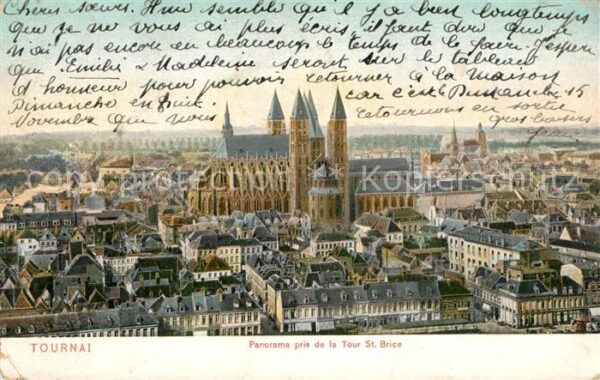 Chères sœurs. Il me semble qu'il y a bien longtemps
que je ne vous ai plus écris, il faut dire que je
n'ai pas encore eu beaucoup le temps de le faire. J'espère
que Emilie & Madeleine seront sur le tableau
d'honneur pour pouvoir retourner à la maison
Dimanche en huit. car c'est Dimanche 15
Novembre que nous retournons en sortie
gros baisers
Copyright protection Kopierschutz
TOURNAI
Panorama pris de la Tour St. Brice